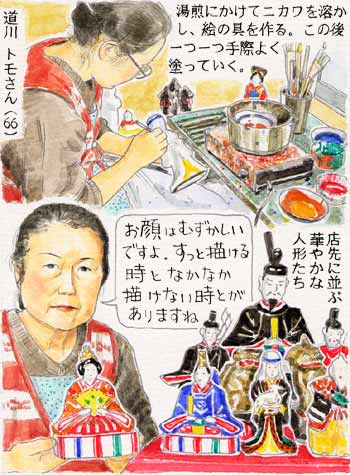 道川 トモさん(66)
湯煎にかけてニカワを溶か
し、絵の具を作る。この後
一つ一つ手際よく
塗っていく。
お顔はむずかしい
ですよ。すっと描ける
時となかなか
描けない時とが
ありますね
店先に並ぶ
華やかな
人形たち